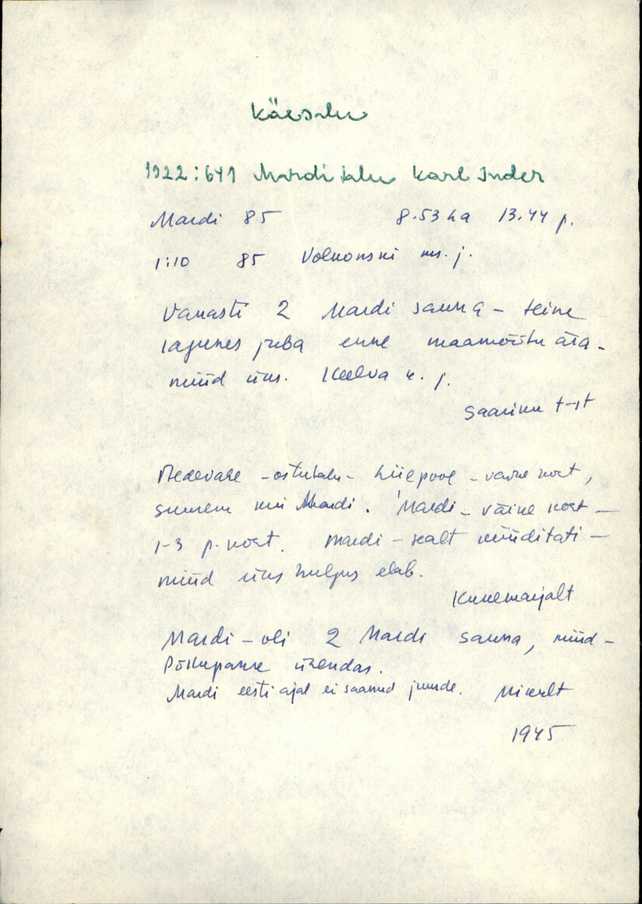 Käesalu
1922:641 Mardi talu Karl Inder
Mardi 85 8.53 ha 13.44 p.
1:10 85 Volkonski ms. j.
Vanasti 2 Mardi sauna - teine
lagunes juba enne maamõõtu ära -
nüüd üks. Keelva k. j.
Saariku t-st
- ostutalu - Hiiepoole - väike koht,
suurem kui Mardi. Mardi - väike koht -
1-3 p. koht. Mardi - sealt müüditati -
nüüd üks hulgus elab.
Kunemarjalt
Mardi - oli 2 Mardi sauna, nüüd -
Põllupank ühendas.
Mardi eesti ajal ei saanud juude.
1945